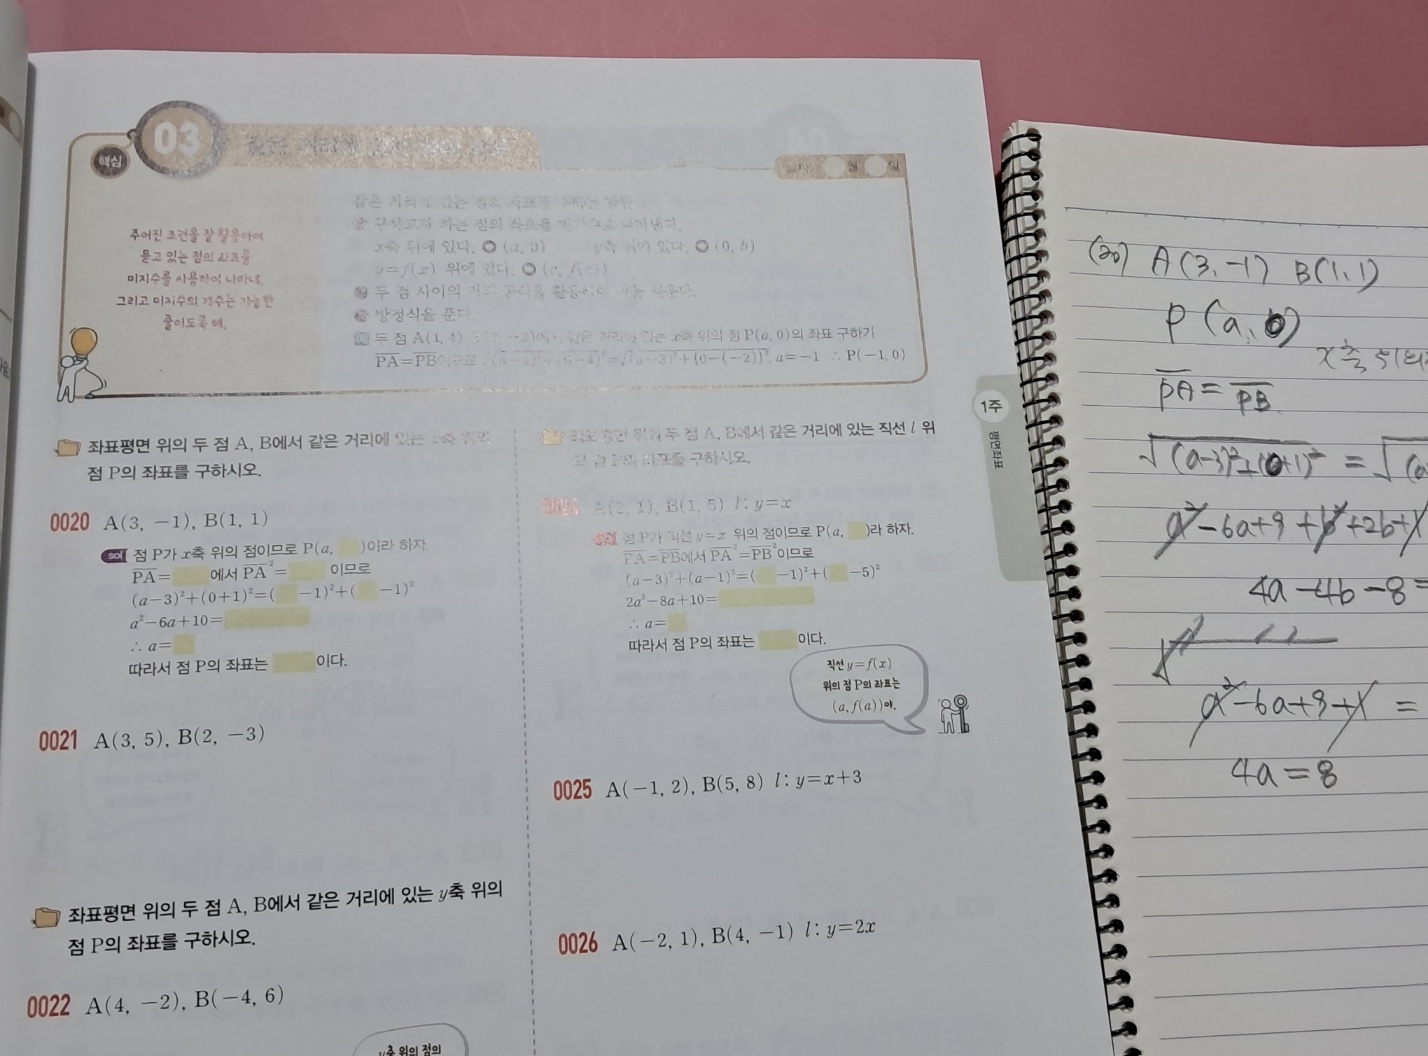 핵심
03
주어진 조건을 잘 활용하여
묻고 있는 점의 좌표를
미지수를 사용하여 나타내.
그리고 미지수의 개수는 가능한
줄이도록 해.
구하고자 하는 점의 좌표를
x축 위에 있다. (a, 0) y축 위에 있다. (0, b)
y=f(x) 위에 있다. (c, f(c))
두 점 사이의 거리 공식을 활용하여
방정식을 푼다.
두 점 A(1, 4), 같은 거리에 있는 x축 위의 점 P(a, 0)의 좌표 구하기
PA=PB이므로 a=-1 ∴ P(-1, 0)
좌표평면 위의 두 점 A, B에서 같은 거리에 있는 x축 위의
점 P의 좌표를 구하시오.
0020 A(3, -1), B(1, 1)
sol 점 P가 x축 위의 점이므로 P(a, )이라 하자.
PA= 에서 PA²= 이므로
(a-3)²+(0+1)²=( -1)²+( -1)²
a²-6a+10=
∴ a=
따라서 점 P의 좌표는 이다.
0021 A(3, 5), B(2, -3)
좌표평면 위의 두 점 A, B에서 같은 거리에 있는 y축 위의
점 P의 좌표를 구하시오.
0022 A(4, -2), B(-4, 6)
y축 위의 점의
좌표평면 위의 두 점 A, B에서 같은 거리에 있는 직선 l 위
의 점 P의 좌표를 구하시오.
1), B(1, 5) l : y=x
점 P가 직선 y=x 위의 점이므로 P(a, )라 하자.
PA=PB에서 PA²=PB²이므로
(a-3)²+(a-1)²=( -1)²+( -5)²
2a²-8a+10=
∴ a=
따라서 점 P의 좌표는 이다.
직선 y=f(x)
위의 점 P의 좌표는
(a, f(a))야.
0025 A(-1, 2), B(5, 8) l : y=x+3
0026 A(-2, 1), B(4, -1) l : y=2x
1주
평면좌표
(20) A(3, -1) B(1, 1)
P(a, 0)
x축
PA = PB
√(a-3)²+(0+1)² = √(a
a²-6a+9+b²+2b+1
4a-4b-8=
a²-6a+9+1 =
4a=8